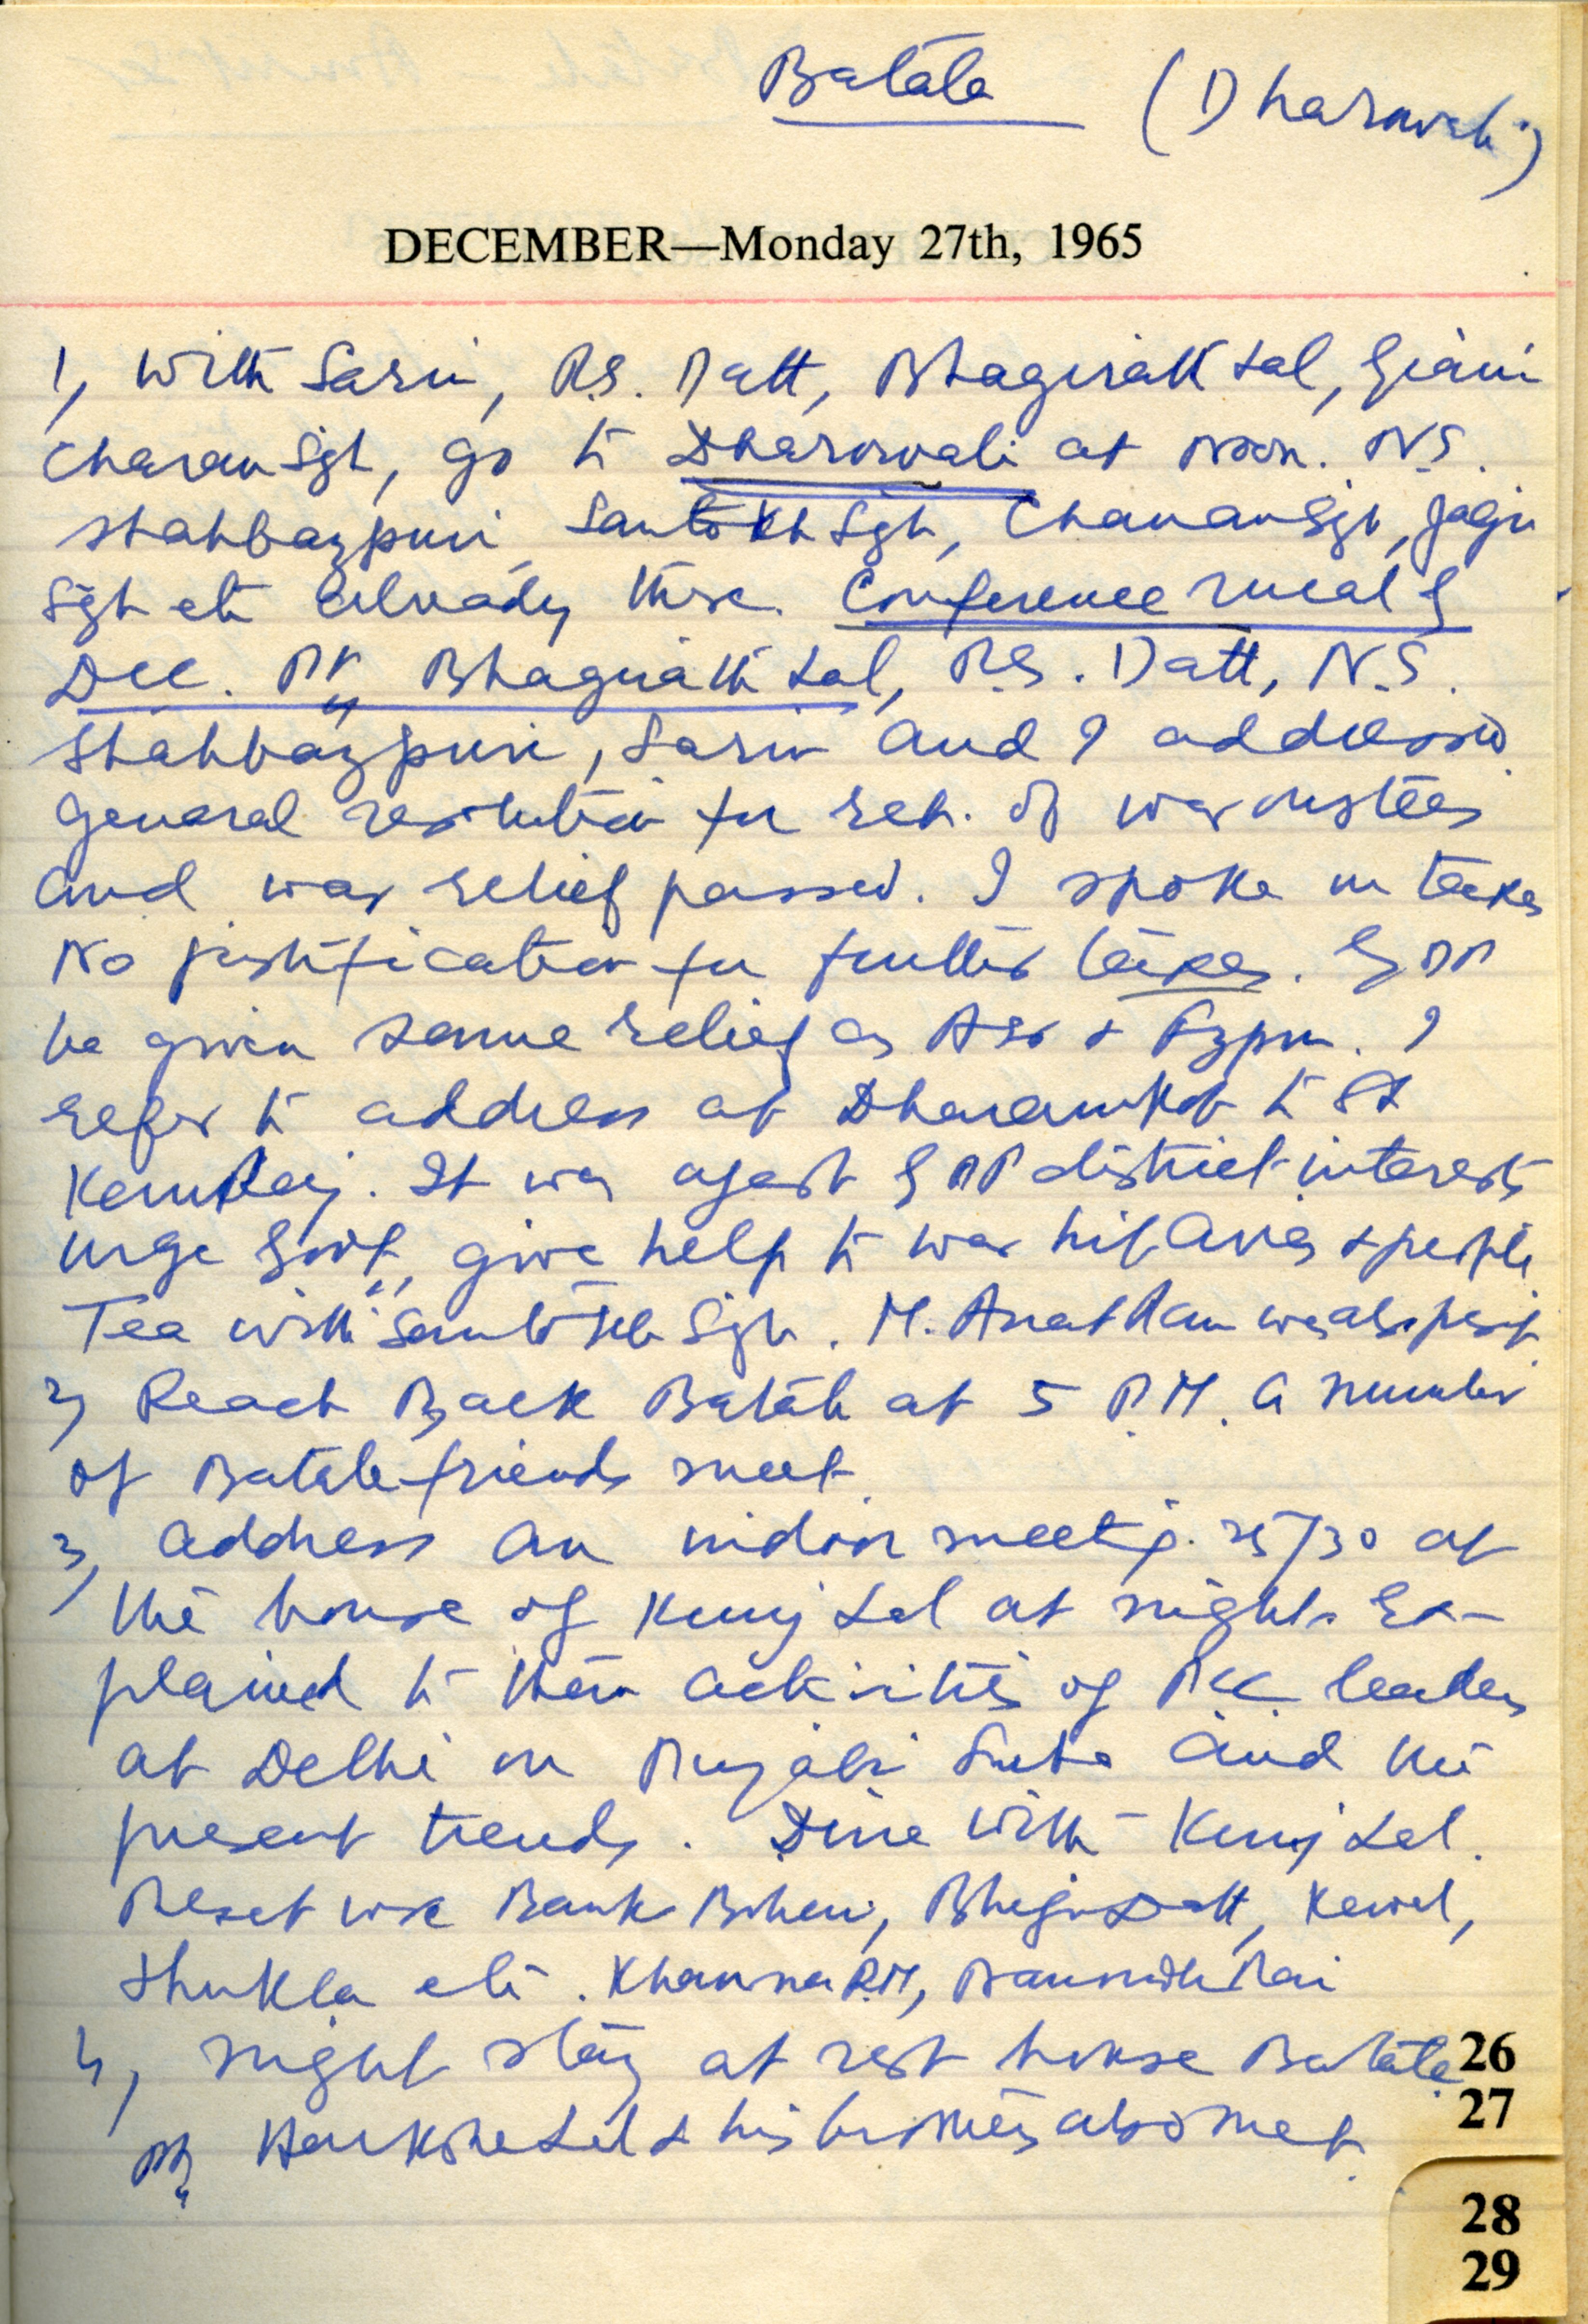 Batala (Dharowali)
DECEMBER—Monday 27th, 1965
1, With Sarin, R.S. Datt, Bhagirath Lal, Giani
Charan Sgh, go to Dharowali at Noon. N.S.
Shahbazpuri, Santokh Sgh, Chanan Sgh, Jagir
Sgh etc already there. Conference rural
Bhagirath Lal, R.S. Datt, N.S.
Shahbazpuri, Sarin and I addressed
General resolution for reh. of war
and war relief passed. I spoke on taxes
No justification for further taxes. GDP
be given same relief as Asr & Fzpur. I
refer to address at Dharamkot to
Kamraj. It was agast GDP district interests
urge Govt, give help to war hit areas & people
Tea with Santokh Sgh. M. Anat Ram was also present
2, Reach Back Batala at 5 P.M. A number
of Batala friends meet
3, address an indoor meetig. 25/30 at
the house of Kunj Lal at night. Ex-
plained to them activities of PCC leaders
at Delhi on Punjabi Suba and the
present trends. Dine with Kunj Lal.
Present were Bihari, Kewal,
Shukla etc. Khanna R.M,
4, night stay at rest house Batala
& his brothers also met.
26
27
28
29